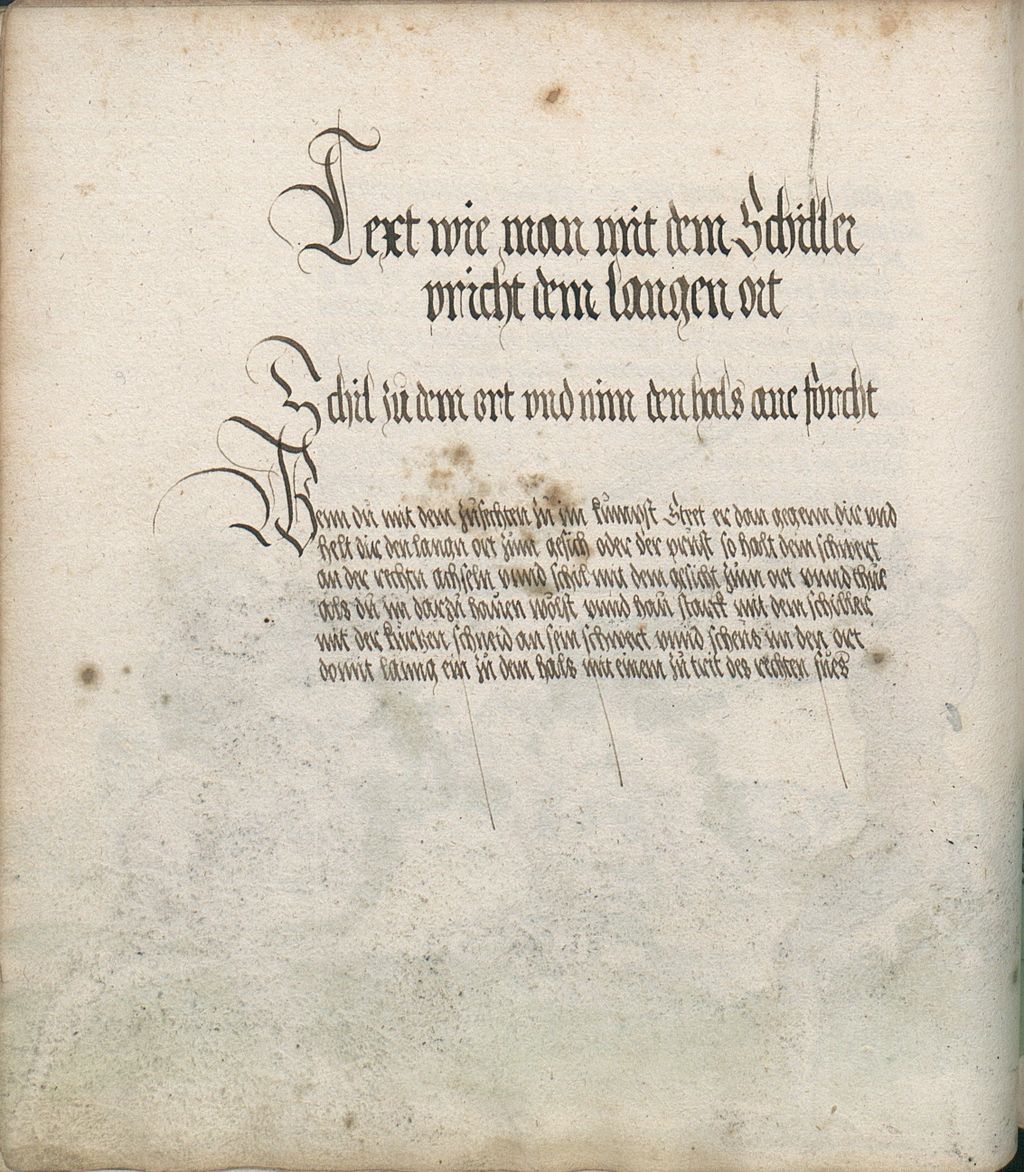 Text wie man mit dem Schiller
pricht dem langen ort
Schil zu dem ort vnd nim den hals ane forcht
Wenn du mit dem zufechten zu im kumpst Stet er dan gegenn dir vnd
helt dir den langn ort zum gesich oder der prust so halt dem schwert
an der rechtn achseln vnnd schil mit dem gesicht zum ort vnnd thue
als du im darzu hauen wolst vnnd hau starck mit dem schiller
mit der kurczen schneid an sein schwert vnnd scheus im den ort
domit lanng ein zu dem hals mit einem zu trit des rechten fues